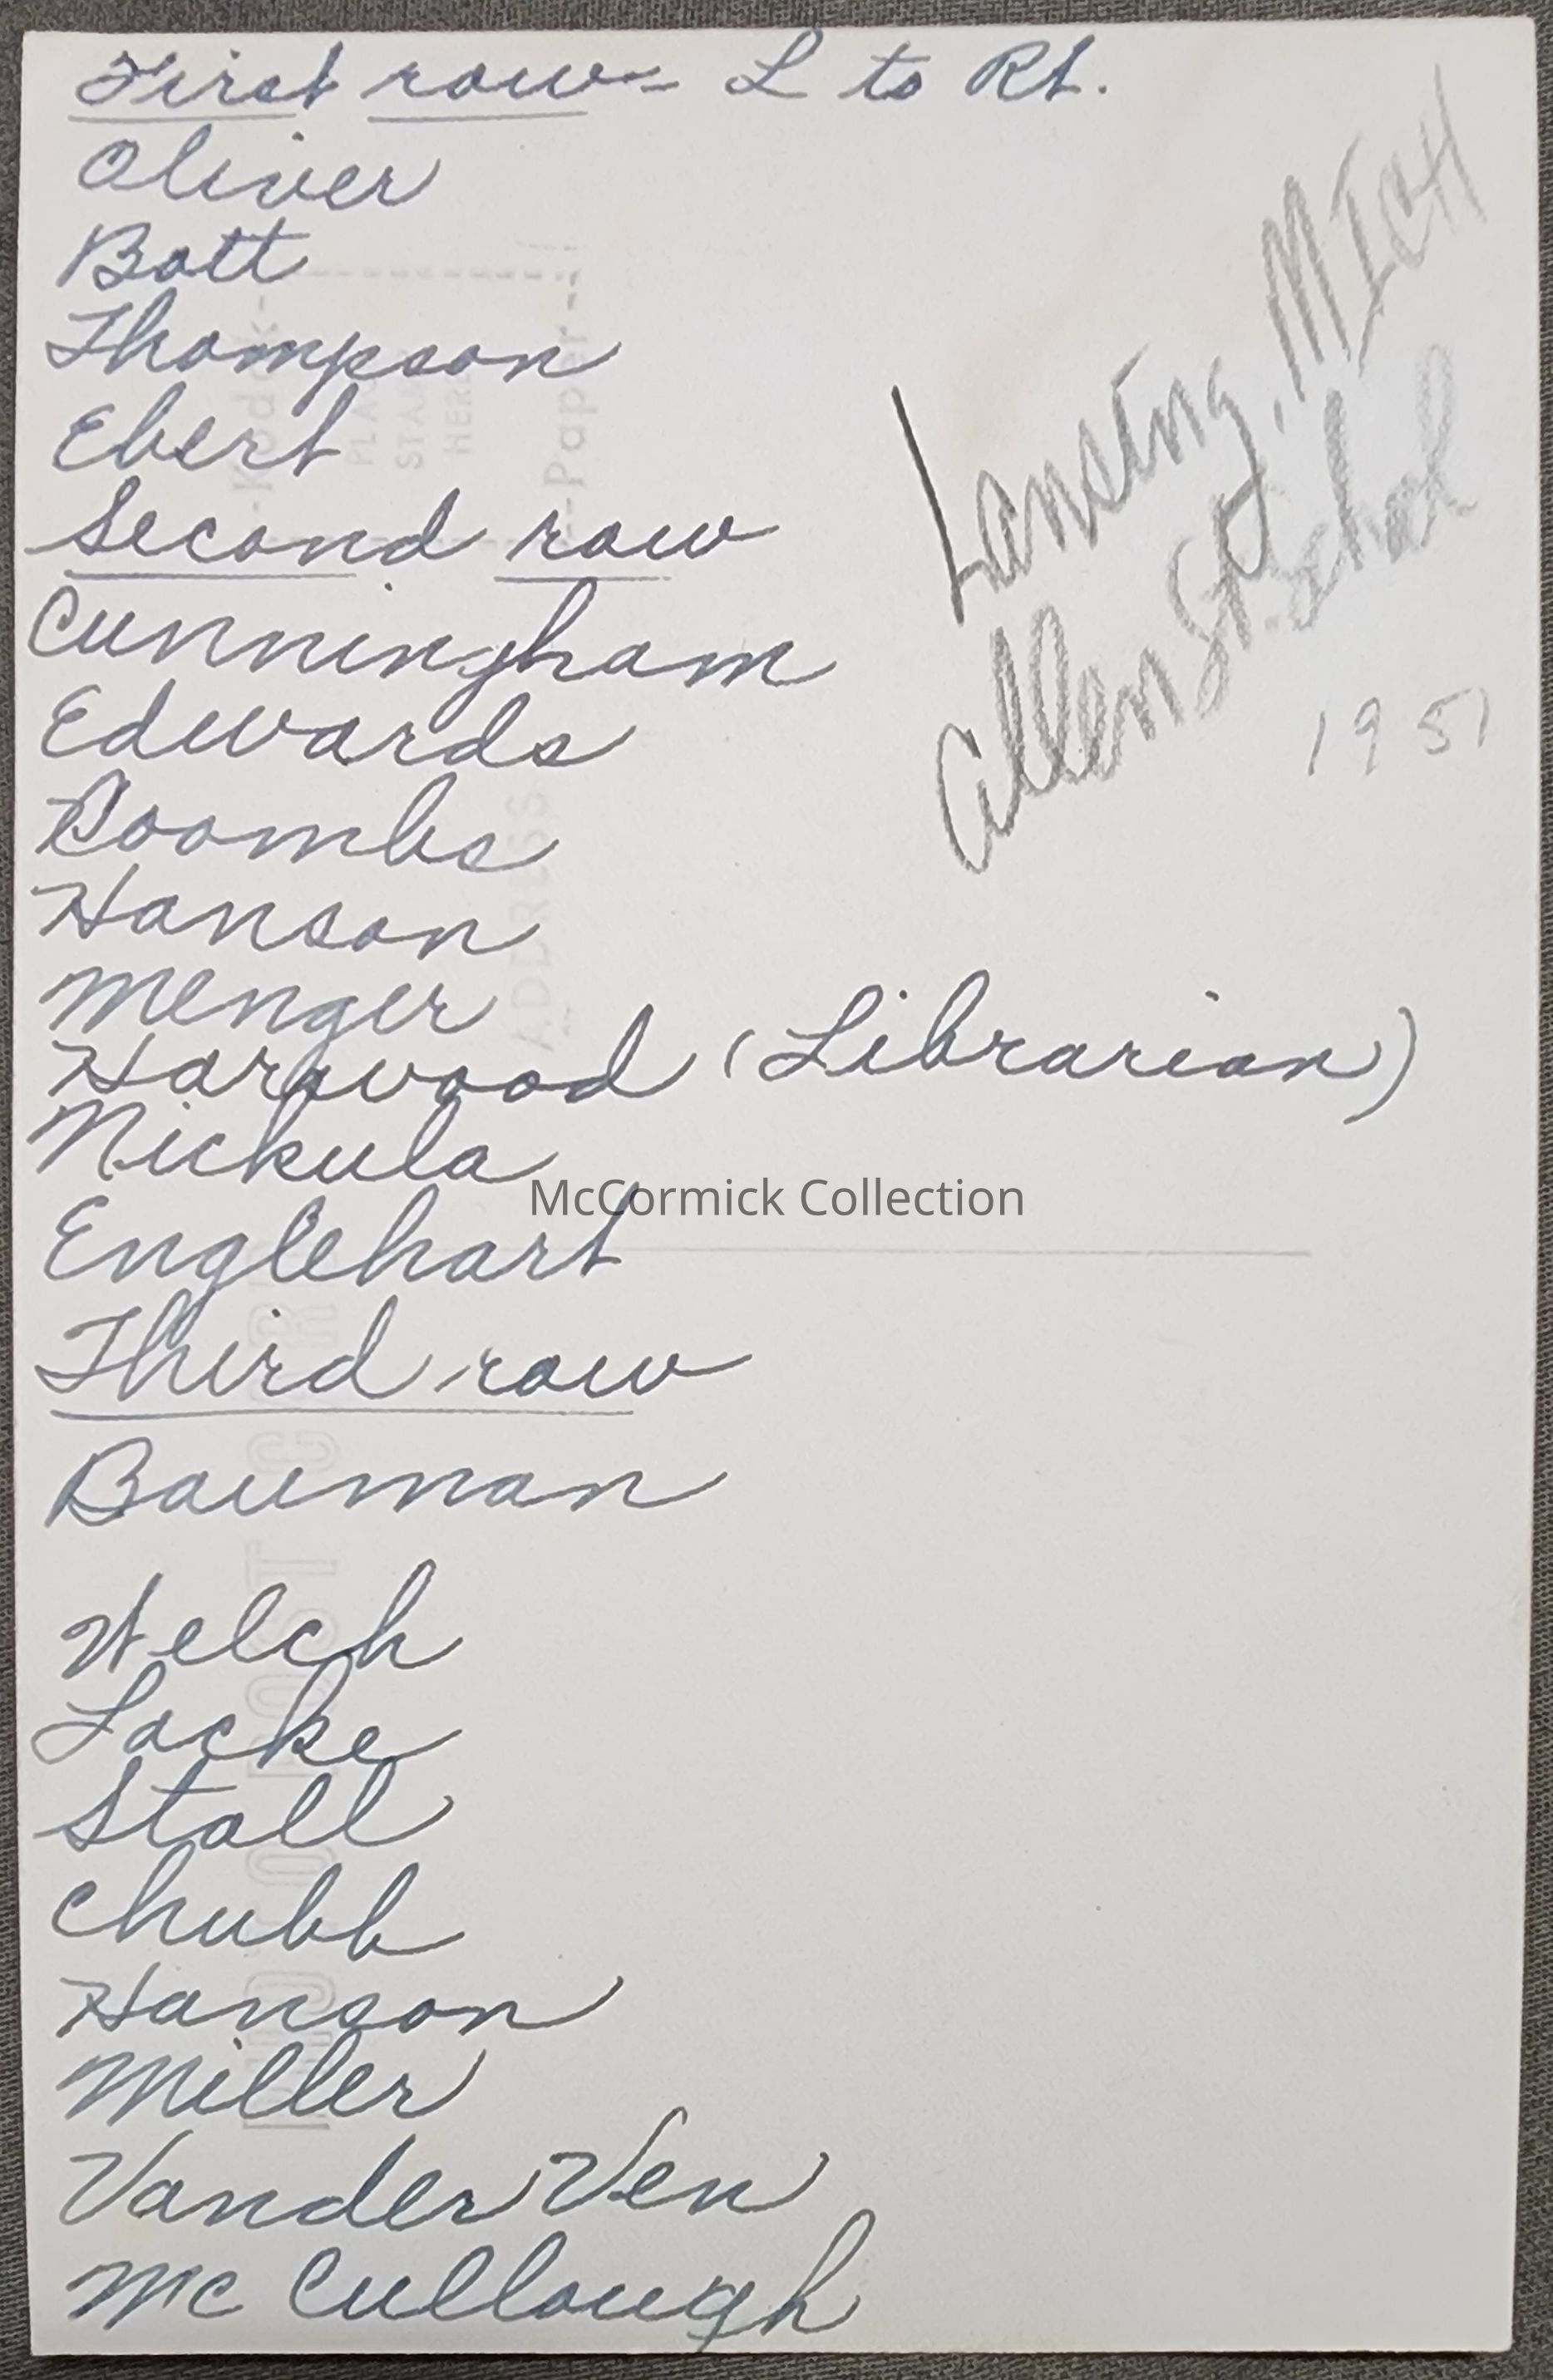 First row - L to Rt.
Oliver
Bott
Thompson
Ebert
Second row
Cunningham
Edwards
Coombs
Hanson
Menger
Harwood (Librarian)
Nickula
Englehart
Third row
Bauman
Welch
Locke
Stoll
Chubb
Hanson
Miller
Vander Ven
Mc Cullough
Lansing, MICH
Allen St. School
1951
McCormick Collection
--Kodak--
PLACE
STAMP
HERE
--Paper--
ADDRESS
POST CARD